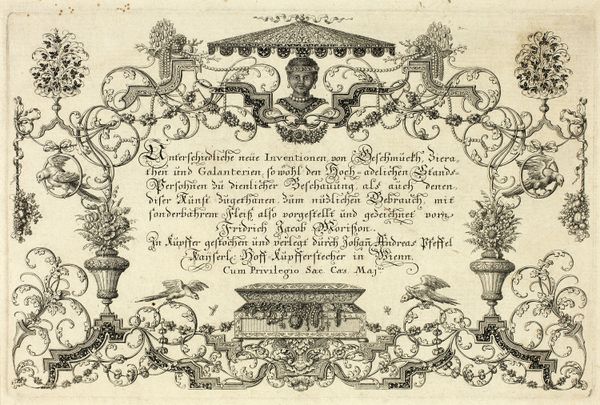 Unterschiedliche neüe Inventionen von Geschmückh, Ziera
then und Galanterien, so wohl den Hoch-adelichen Stands-
Persohnen zü dienlicher Beschauung, als auch denen,
diser Künst Zügethanen zum nüdlichen Gebrauch, mit
sonderbahrem Fleiß also vorgestellt und gedeichnet vorn
Fridrich Jacob Morisson.
In Küpffer gestochen und verlegt dürch Johañ Andreas Pfeffel
Kayserl: Hoff-Küpfferstecher in Wienn.
Cum Privilegio Sac. Cæs. Maj: